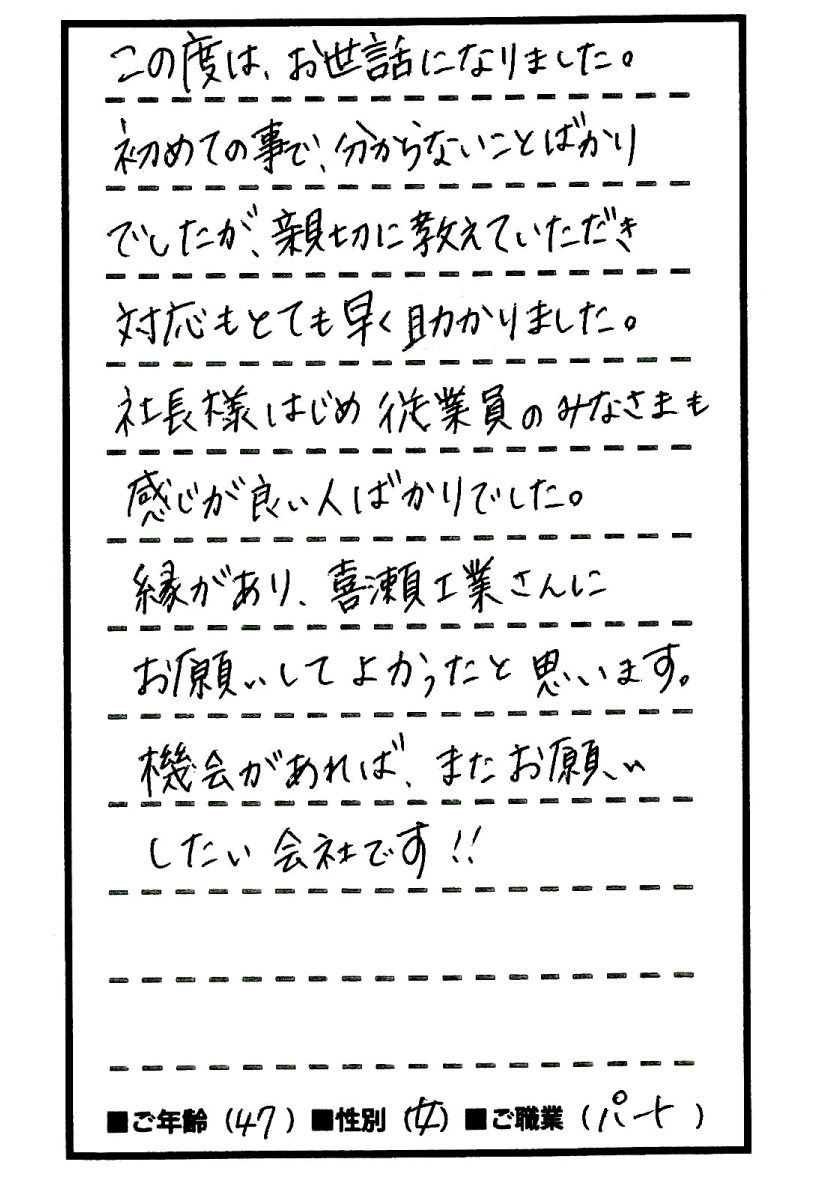 この度は、お世話になりました。
初めての事で、分からないことばかり
でしたが、親切に教えていただき
対応もとても早く助かりました。
社長様はじめ従業員のみなさまも
感じが良い人ばかりでした。
縁があり、喜瀬工業さんに
お願いしてよかったと思います。
機会があれば、またお願い
したい会社です!!
■ご年齢(47)■性別(女)■ご職業(パート)